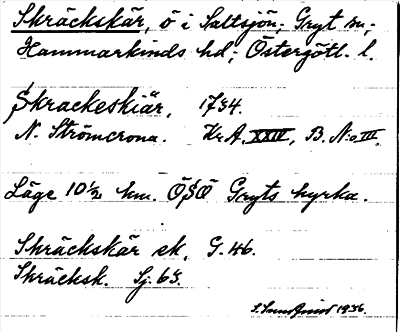 Skräckskär, ö i Saltsjön; Gryt sn;
Hammarkinds hd; Östergötl. l.
Skrackeskiär, 1734.
N. Strömcrona. Kr.A. XXIV, B. N:o III.
Läge 10½ km. ÖSÖ Gryts kyrka.
Skräckskär ek. G. 46.
Skräcksk. Sj. 63.
1936